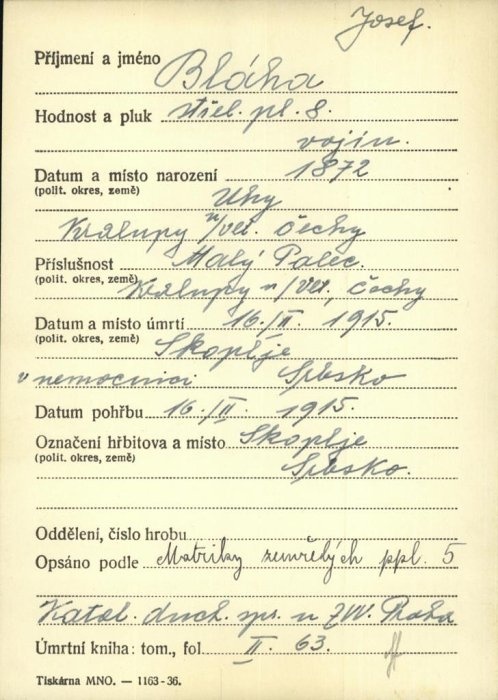 Josef.
Příjmení a jméno Bláha
Hodnost a pluk střel. pl. 8.
vojín.
Datum a místo narození 1872
(polit. okres, země) Uhy
Kralupy n/Vlt. Čechy
Příslušnost Malý Palec.
(polit. okres, země) Kralupy n/Vlt, Čechy
Datum a místo úmrtí 16./II. 1915.
(polit. okres, země) Skoplje
v nemocnici Srbsko
Datum pohřbu 16./II. 1915.
Označení hřbitova a místo Skoplje
(polit. okres, země) Srbsko.
Oddělení, číslo hrobu
Opsáno podle Matriky zemřelých ppl. 5
Katol. duch. spr. u ZVV. Praha
Úmrtní kniha: tom., fol II. 63.
Tiskárna MNO. — 1163-36.